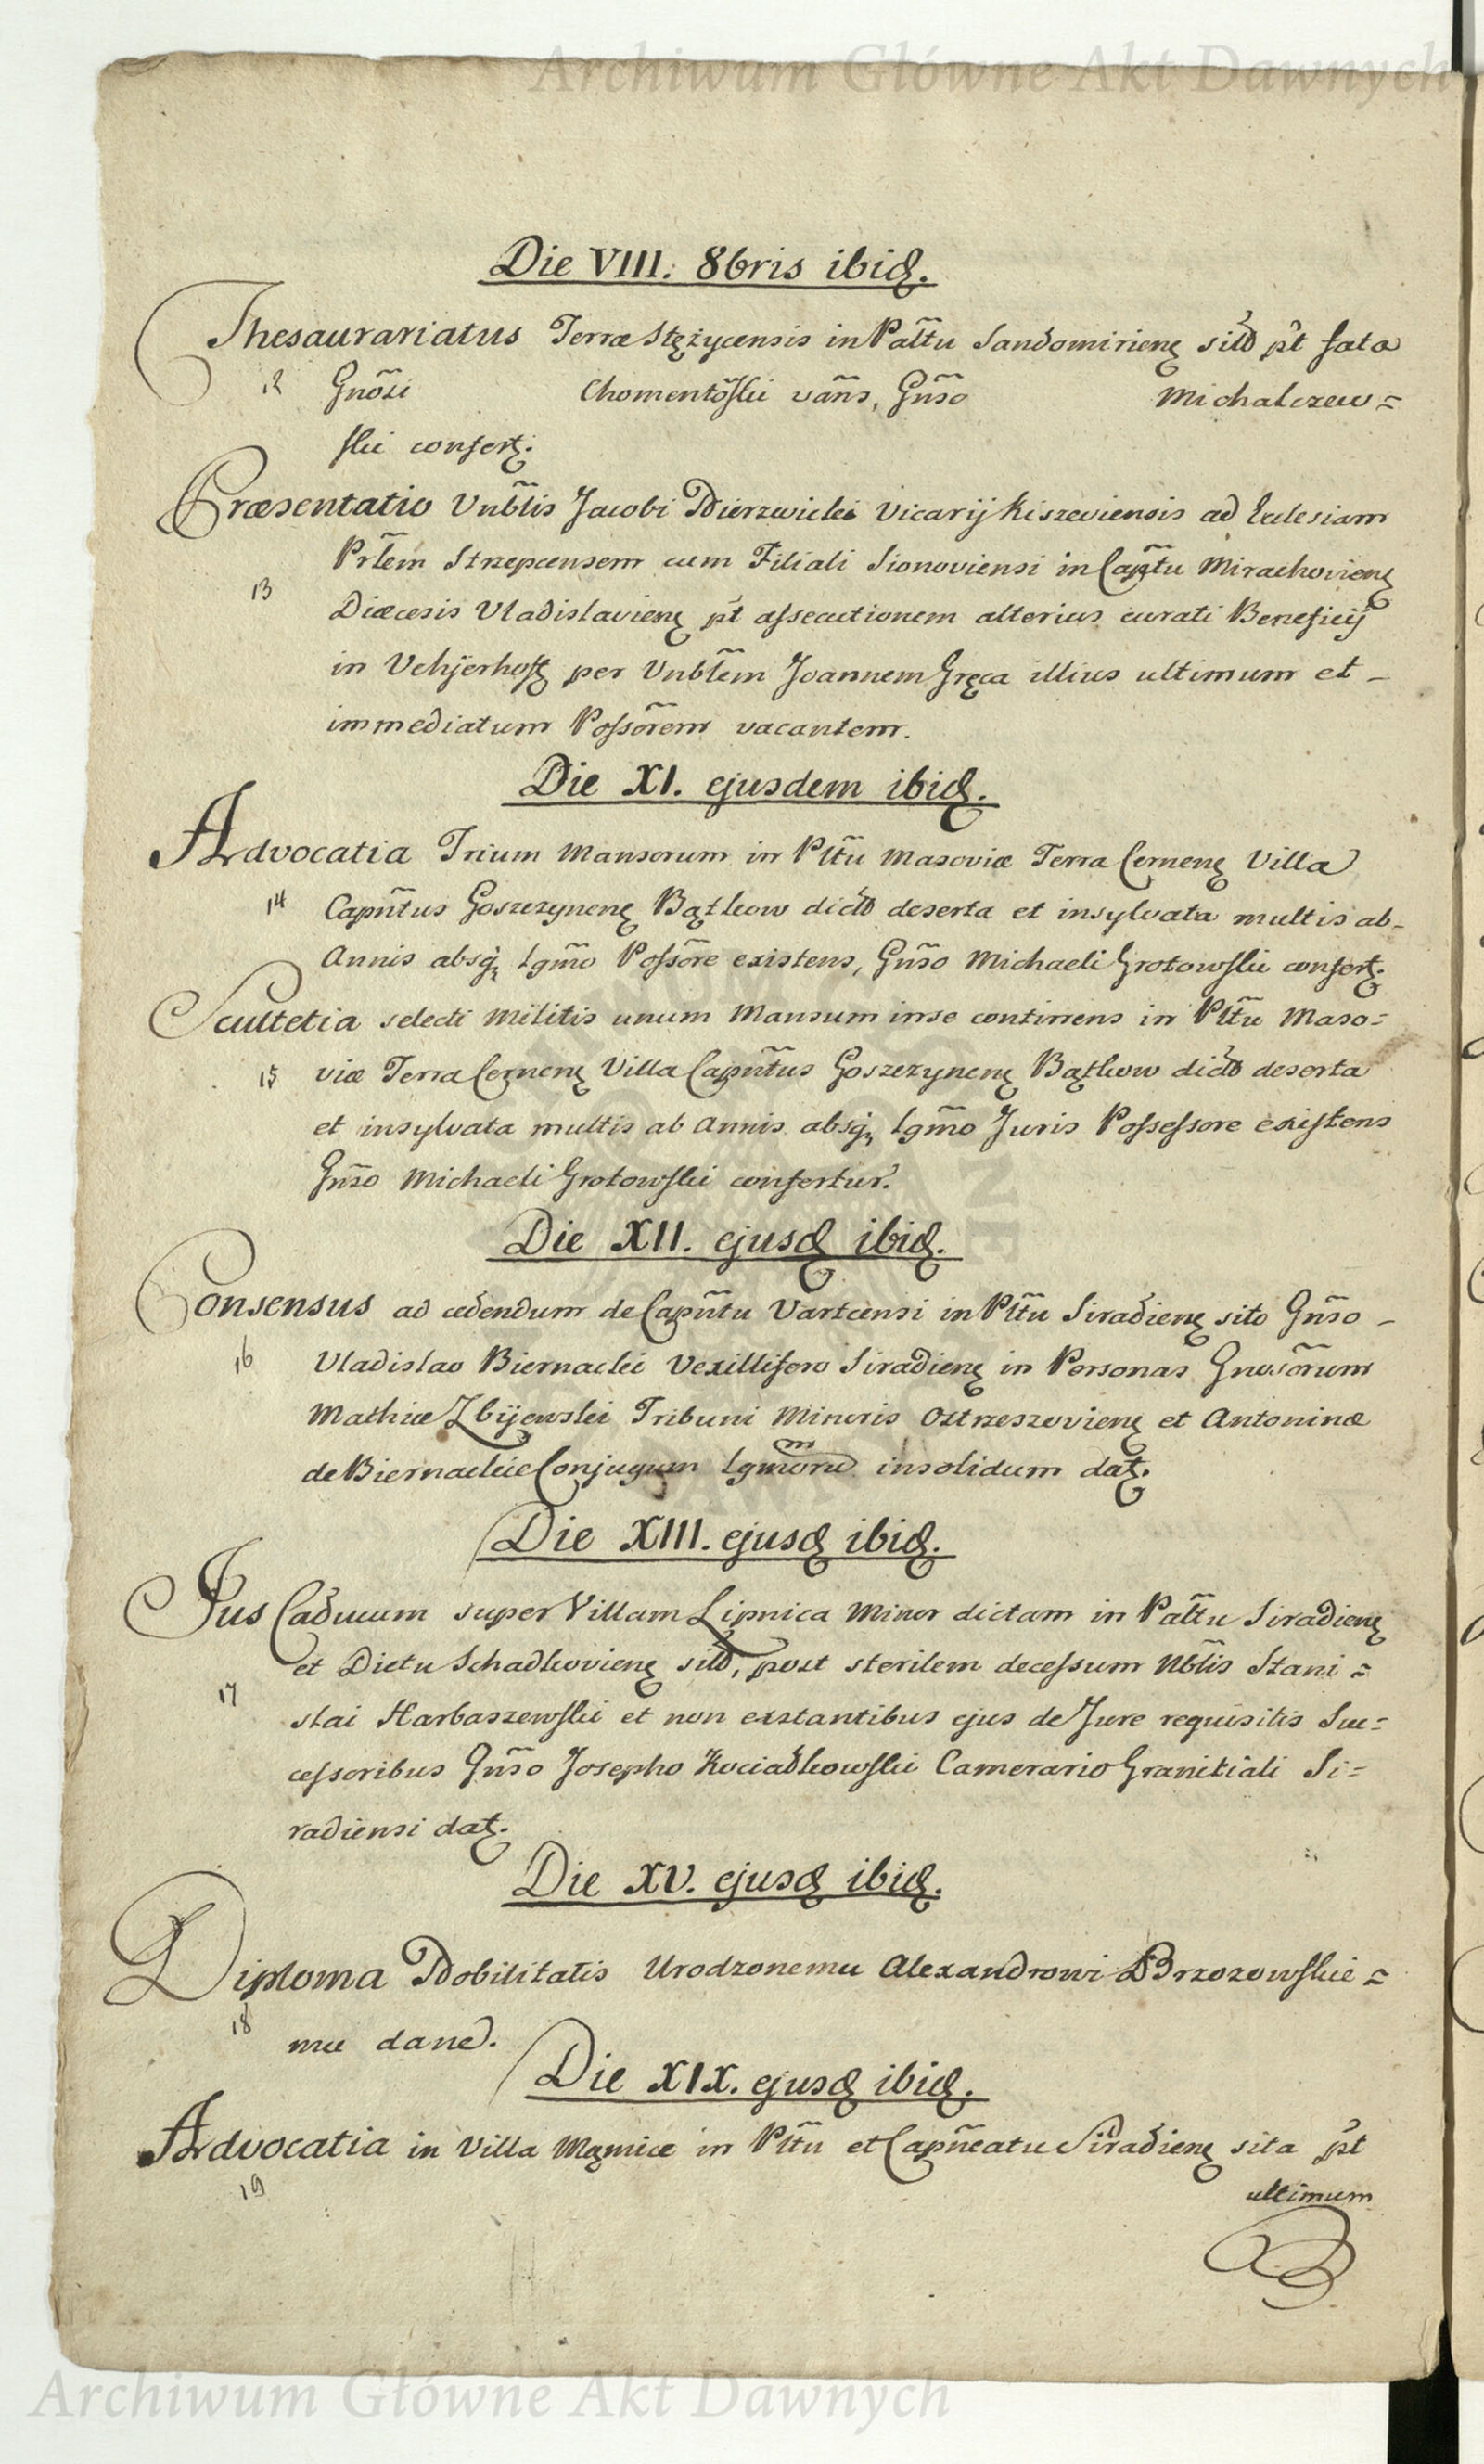 Archiwum Główne Akt Dawnych
Die VIII. 8bris ibid.
Thesaurariatus Terræ Stężycensis in Pałtu Sandomirien sito pt fata
12 Gnosi Chomentoſki vans, Gnso Michalczew=
ſki confert.
Præsentatio Vnblis Jacobi Nierzwicki Vicarij Kiszeviensis ad Ecclesiam
Prlem Strzepcensem cum Filiali Sionoviensi in Captu Mirachovien
13 Diæcesis Vladislavien pt aſsecutionem alterius curati Beneficij
in Vehjerhoff per Vnblem Joannem Gręca illius ultimum et -
immediatum Poſsorem vacantem.
Die XI. ejusdem ibid.
Advocatia Trium Mansorum in Pltu Masoviæ Terra Cernen Villa
14 Capntus Goszczynen Bątkow dicto deserta et insylvata multis ab-
Annis absq lgmo Poſsore existens, Gnso Michaeli Grotowſki confert.
Scultetia selecti Militis unum Mansum in se continens in Pltu Maso=
15 viæ Terra Cernen Villa Capntus Goszczynen Bątkow dicto deserta
et insylvata multis ab Annis absq lgmo Juris Poſseſsore exiſtens
Gnso Michaeli Grotowſki confertur.
Die XII. ejusd ibid.
Consensus ad cedendum de Capntu Vartensi in Pltu Siradien sito Gnso -
16 Vladislao Biernacki Vexillifero Siradien in Personas Gnosorum
Mathiæ Zbijewski Tribuni Minoris Ostrzeszovien et Antoninæ
de Biernackie Conjugum lgmorum insolidum dat.
Die XIII. ejusd ibid.
Jus Caducum super Villam Lipnica Minor dictam in Pałtu Siradien
et Dictu Schadkovien sito, post sterilem deceſsum Nblis Stani=
17 slai Harbaszewſki et non exstantibus ejus de Jure requisitis Suc=
ceſsoribus Gnso Josepho Kociałkowſki Camerario Granitiali Si=
radiensi dat.
Die XV. ejusd ibid.
Diploma Nobilitatis Urodzonemu Alexandrowi Brzozowſkie=
18 mu dane.
Die XIX. ejusd ibid.
Advocatia in Villa Męmice in Pltu et Capneatu Siradien sita pt
19
ultimum
Archiwum Główne Akt Dawnych